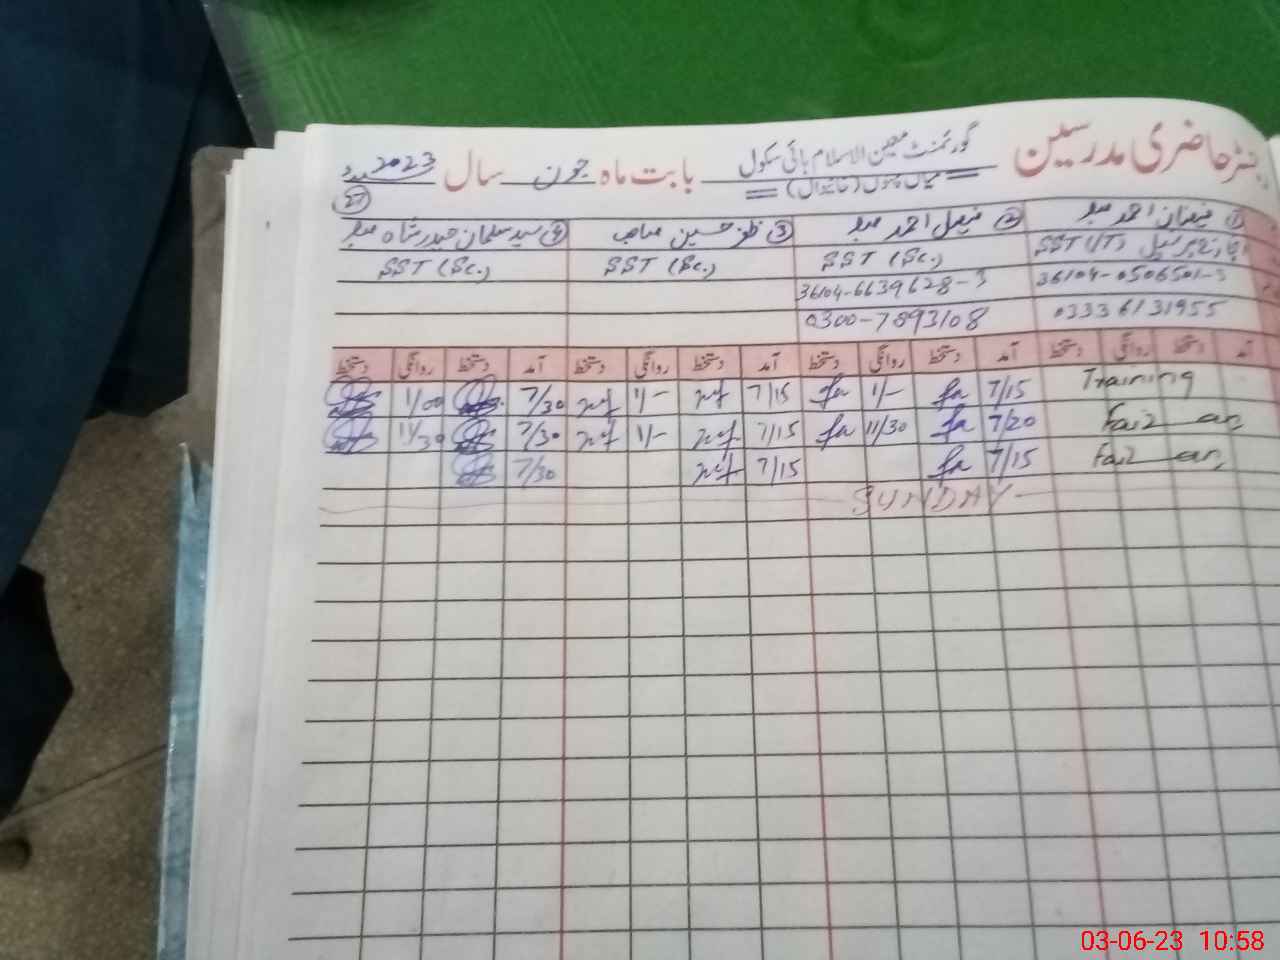 رجسٹر حاضری مدرسین گورنمنٹ معین الاسلام ہائی سکول بابت ماہ جون سال 2023ء
میاں چنوں (خانیوال)
27
① فیضان احمد صاحب ② فیصل احمد صاحب ③ ظفر حسین صاحب ④ سید سلمان حیدر شاہ صاحب
SST (IT) انچارج پرنسپل SST (Sc.) SST (Sc.) SST (Sc.)
36104-0506501-3 36104-6639628-3
0333 6131955 0300-7893108
آمد دستخط روانگی دستخط آمد دستخط روانگی دستخط آمد دستخط روانگی دستخط آمد دستخط روانگی دستخط
Training 7/15 1/- 7/15 1/- 7/30 1/00
7/20 11/30 7/15 1/- 7/30 11/30
7/15 7/15 7/30
SUNDAY
03-06-23 10:58